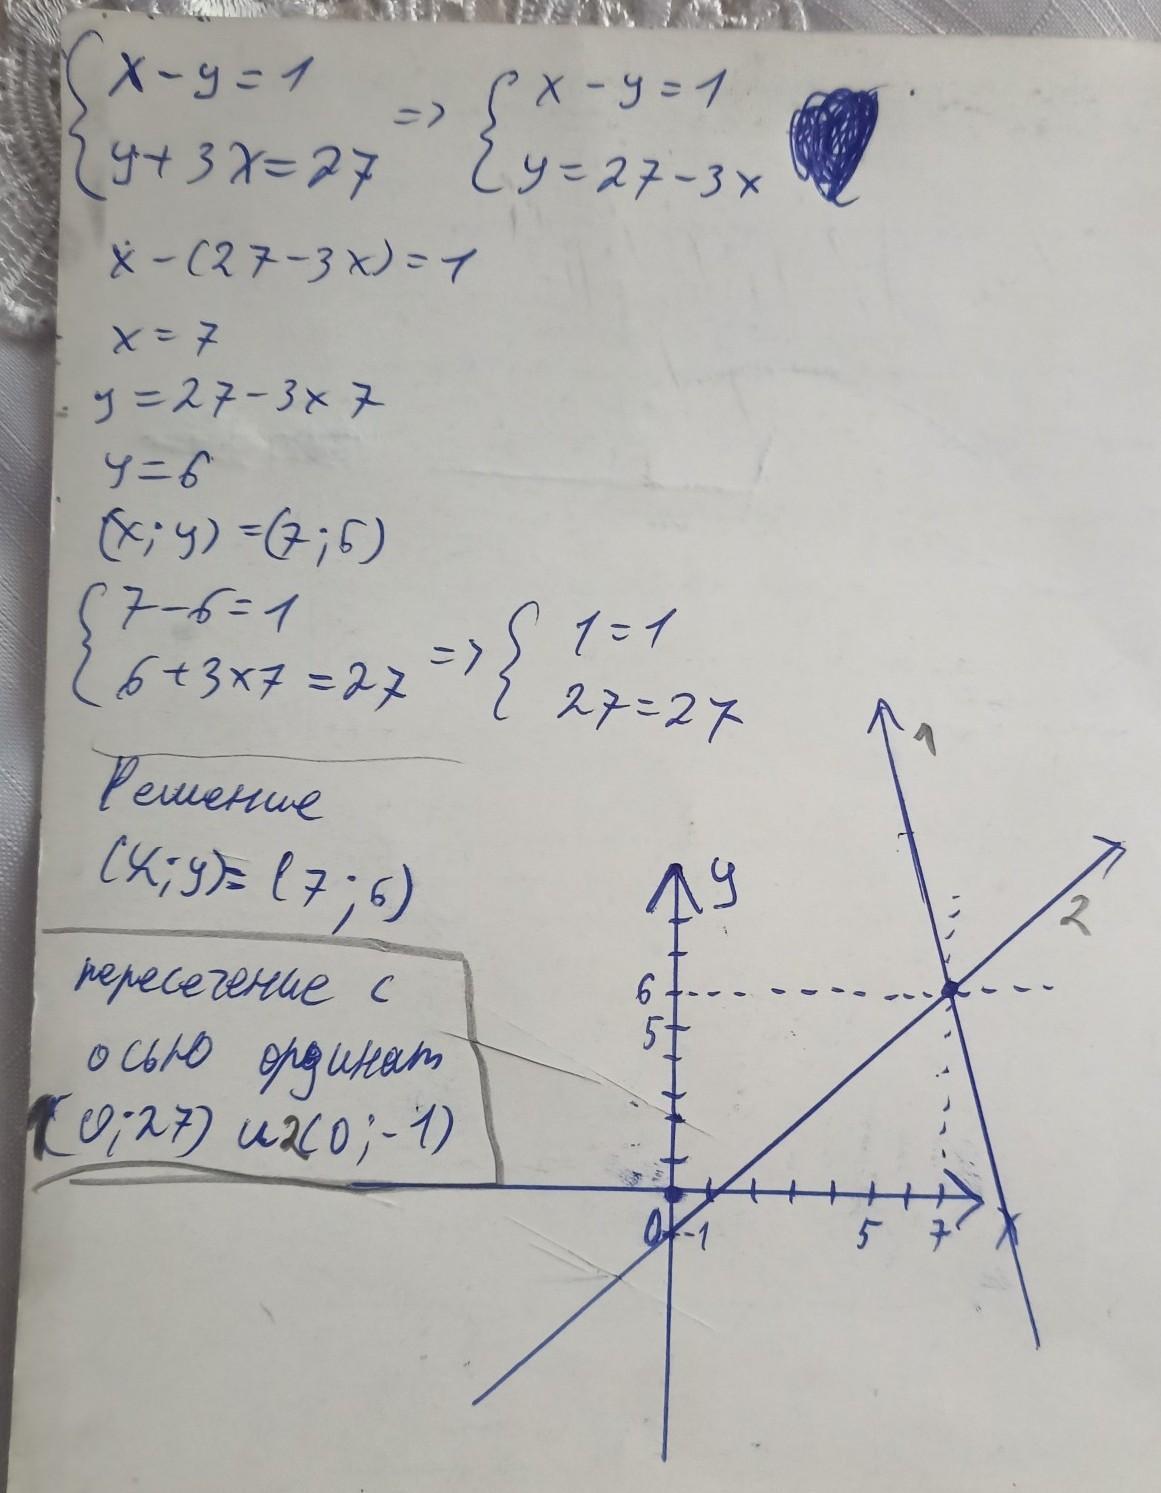 x - y = 1
y + 3x = 27
=> x - y = 1
y = 27 - 3x
x - (27 - 3x) = 1
x = 7
y = 27 - 3x7
y = 6
(x; y) = (7; 6)
7 - 6 = 1
6 + 3x7 = 27
=> 1 = 1
27 = 27
Решение
(x; y) = (7; 6)
пересечение с
осью ординат
1(0; 27) и 2(0; -1)
1
2
y
6
5
0
-1
5
7
x